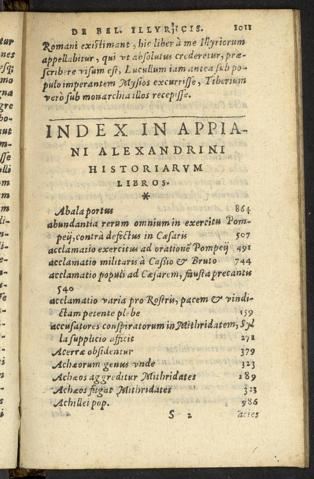 DE BEL. ILLYRICIS. 1011
Romani existimant, hic liber à me Illyriorum
appellabitur, qui vt absolutus crederetur, præ-
scribere visum est, Lucullum iam antea sub po-
pulo imperantem Mysios excurrisse, Tiberium
verò sub monarchia illos recepisse.
INDEX IN APPIA-
NI ALEXANDRINI
HISTORIARVM
LIBROS.
*
Abala portus 864
abundantia rerum omnium in exercitu Pom-
peij, contrà defectus in Cæsaris 507
acclamatio exercitus ad orationẽ Pompeij 491
acclamatio militaris à Cassio & Bruto 744
acclamatio populi ad Cæsarem, fausta precantis
540
acclamatio varia pro Rostris, pacem & vindi-
ctam petente plebe 159
accusatores conspiratorum in Mithridatem, Syl
la supplicio efficit 272
Acerræ obsidentur 379
Achæorum genus vnde 323
Achæos aggreditur Mithridates 289
Achæos fugat Mithridates 323
Achillei pop. 986
S 2 acies